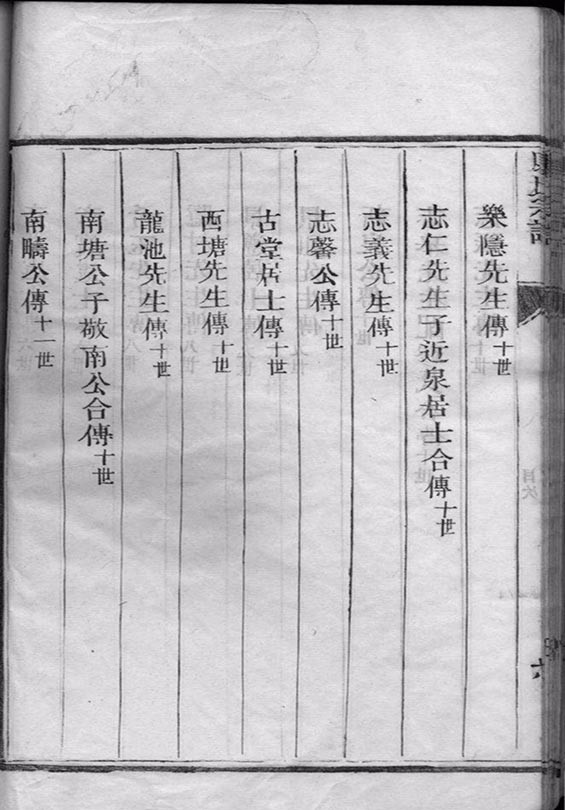 樂隱先生傳十世
志仁先生子近泉居士合傳十世
志義先生傳十世
志馨公傳十世
古堂居士傳十世
西塘先生傳十世
龍池先生傳十世
南塘公子敬南公合傳十世
南疇公傳十一世